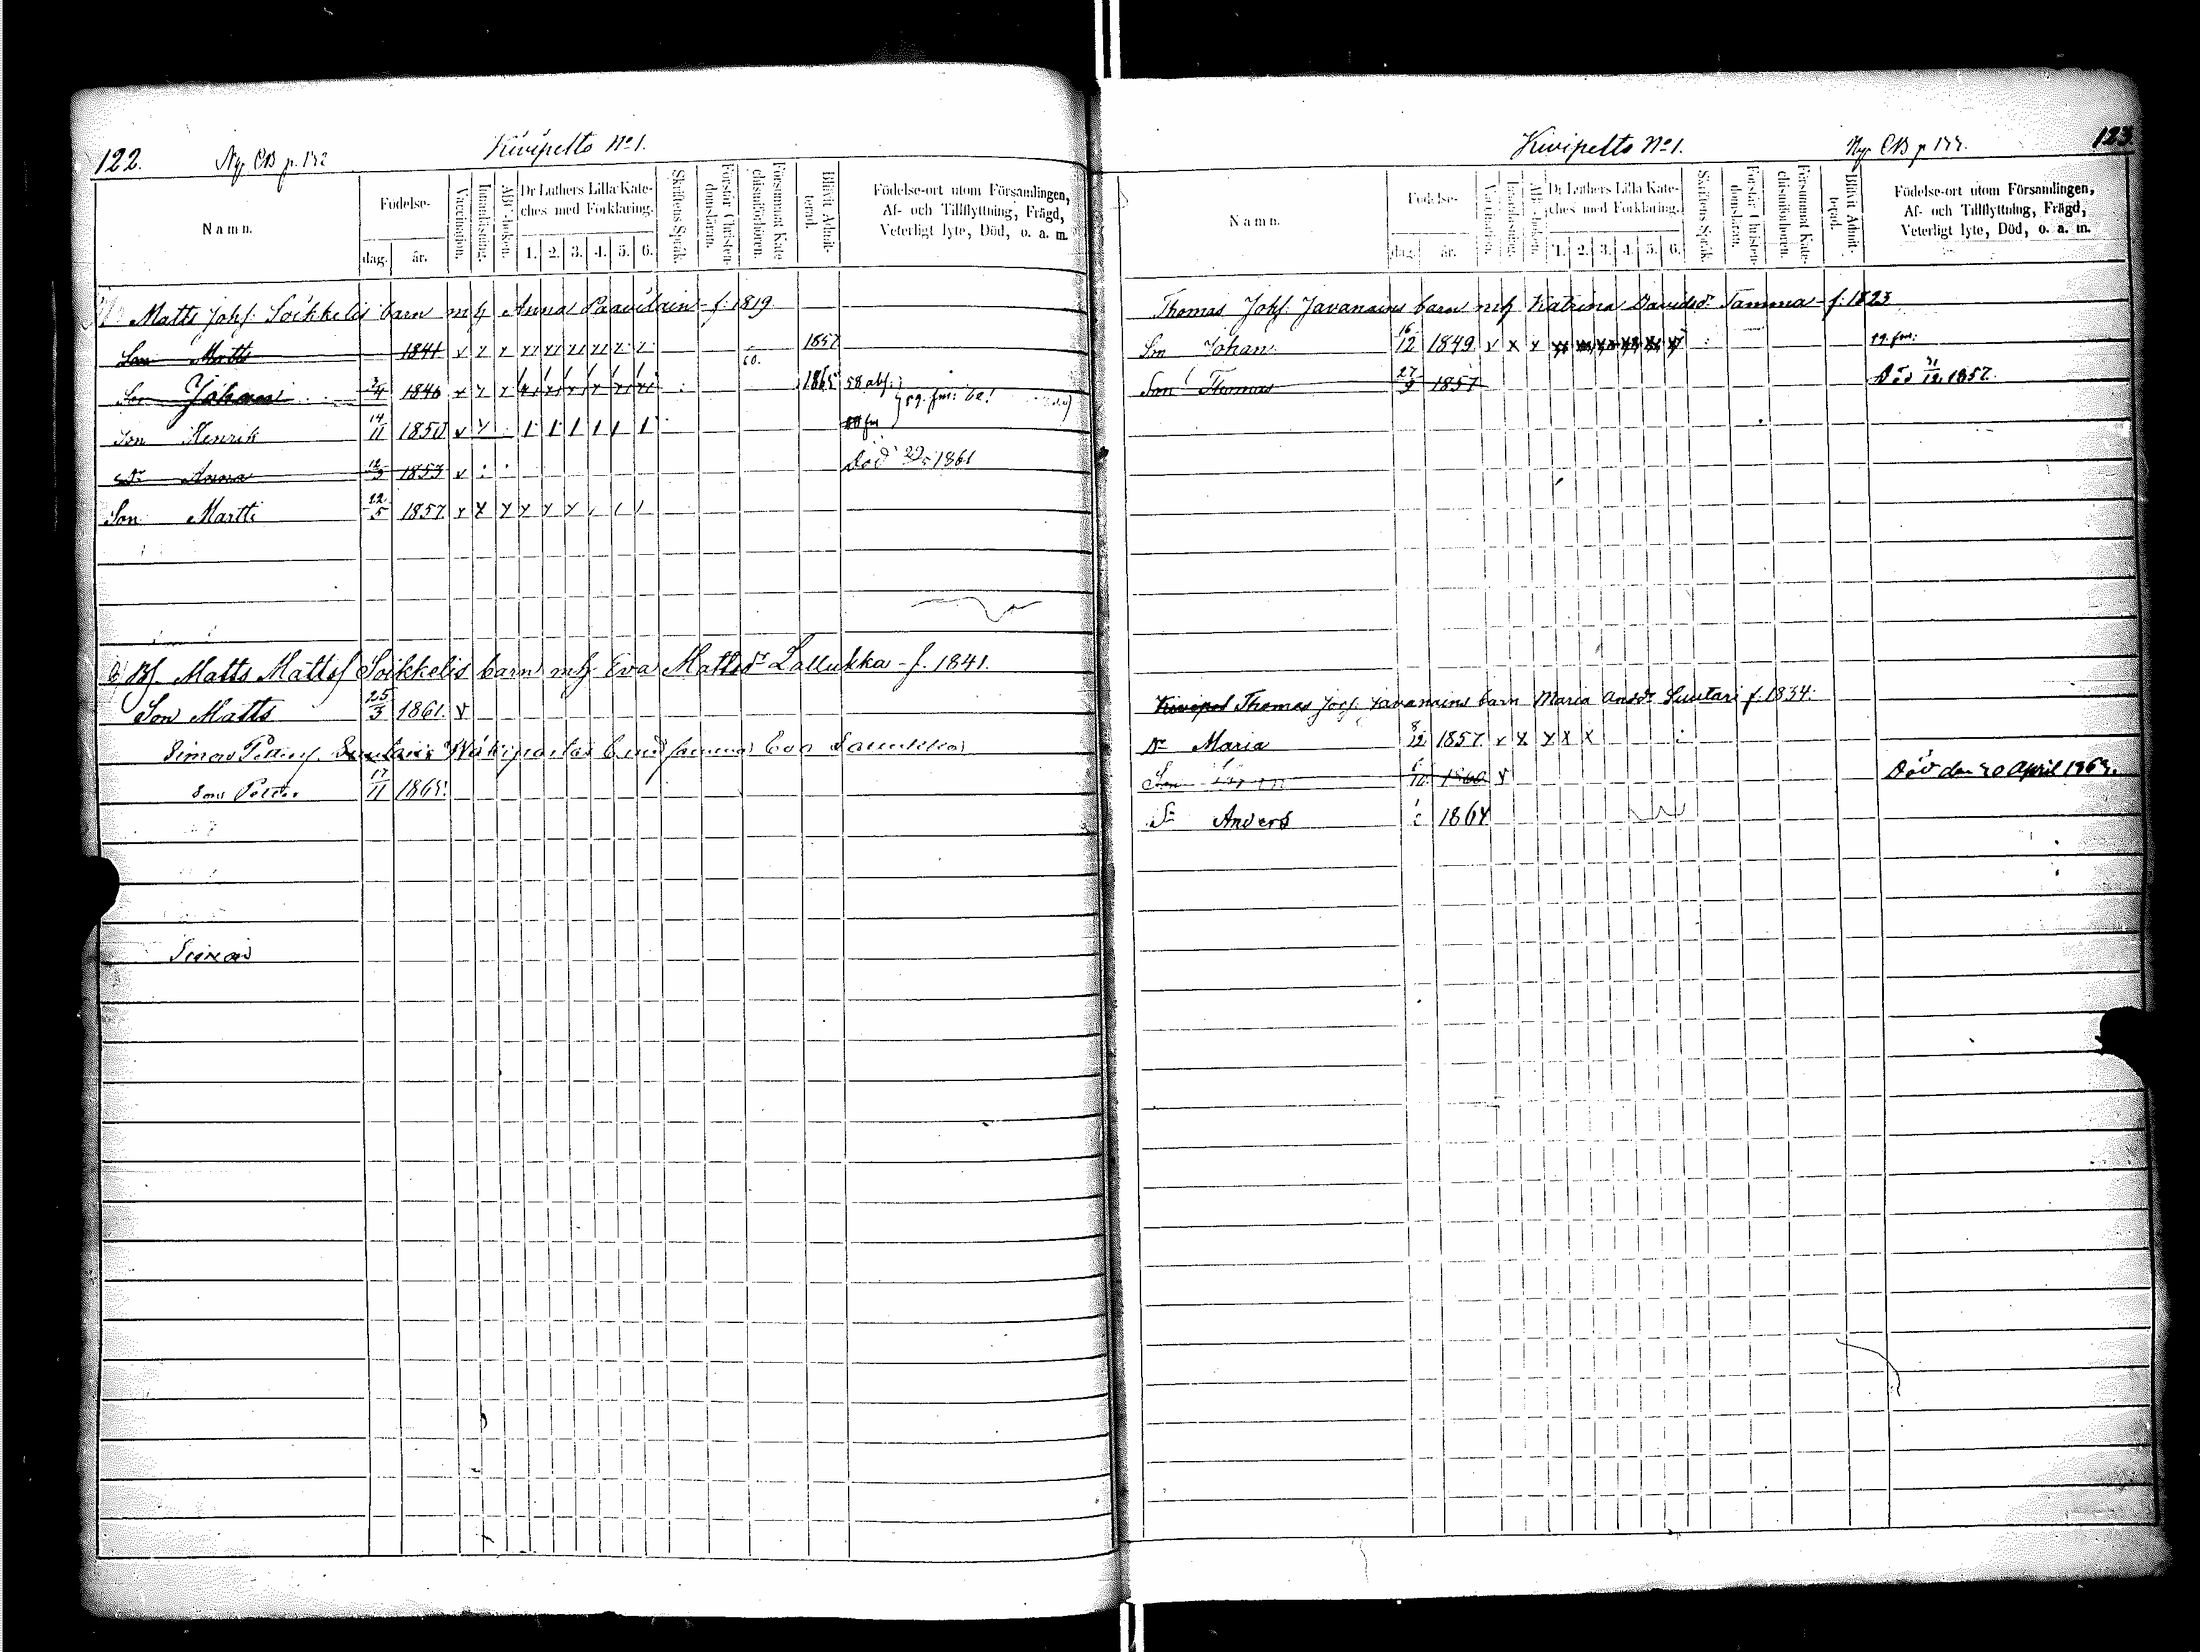 122. Ny CB p. 132 Kivipelto No 1.
Namn. Födelse- dag. år. Vaccination. Innanläsning. ABC-boken. Dr Luthers Lilla Kateches med Förklaring. 1. 2. 3. 4. 5. 6. Skriftens Språk. Förstår Christendomsläran. Försummat Katechismiförhören. Blifvit Admitterad. Födelse-ort utom Församlingen, Af- och Tillflyttning, Frägd, Veterligt lyte, Död, o. a. m.
Matts Johs. Soikkelis barn mh Anna Paavilain f. 1819
Son Matts 1841 60. 1857
Son Johan 3/4 1846 1865 58 abs.
Son Henrik 14/11 1850
Dr Anna 12/3 1853 Död 1861
Son Martti 22/5 1857
Matts Mattss Soikkelis barn mh. Eva Mattsdr Lallukka - f. 1841.
Son Matts 25/3 1861.
Simon
Son Petter 17/11 1865.
Simon
Kivipelto No 1. Ny CB p 123
Namn. Födelse- dag. år. Vaccination. Innanläsning. ABC-boken. Dr Luthers Lilla Kateches med Förklaring. 1. 2. 3. 4. 5. 6. Skriftens Språk. Förstår Christendomsläran. Försummat Katechismiförhören. Blifvit Admitterad. Födelse-ort utom Församlingen, Af- och Tillflyttning, Frägd, Veterligt lyte, Död, o. a. m.
Thomas Johs. Javanains barn mh Katrina Davidsdr Tamma f. 1823
Son Johan 16/12 1849
Son Thomas 27/9 1857 Död 31/12 1857.
Thomas Jos. Javanains barn Maria Andsdr Suutari f. 1834.
Dr Maria 8/12 1857
Son 1860 Död den 20 April 1862.
Sn Anders 1864